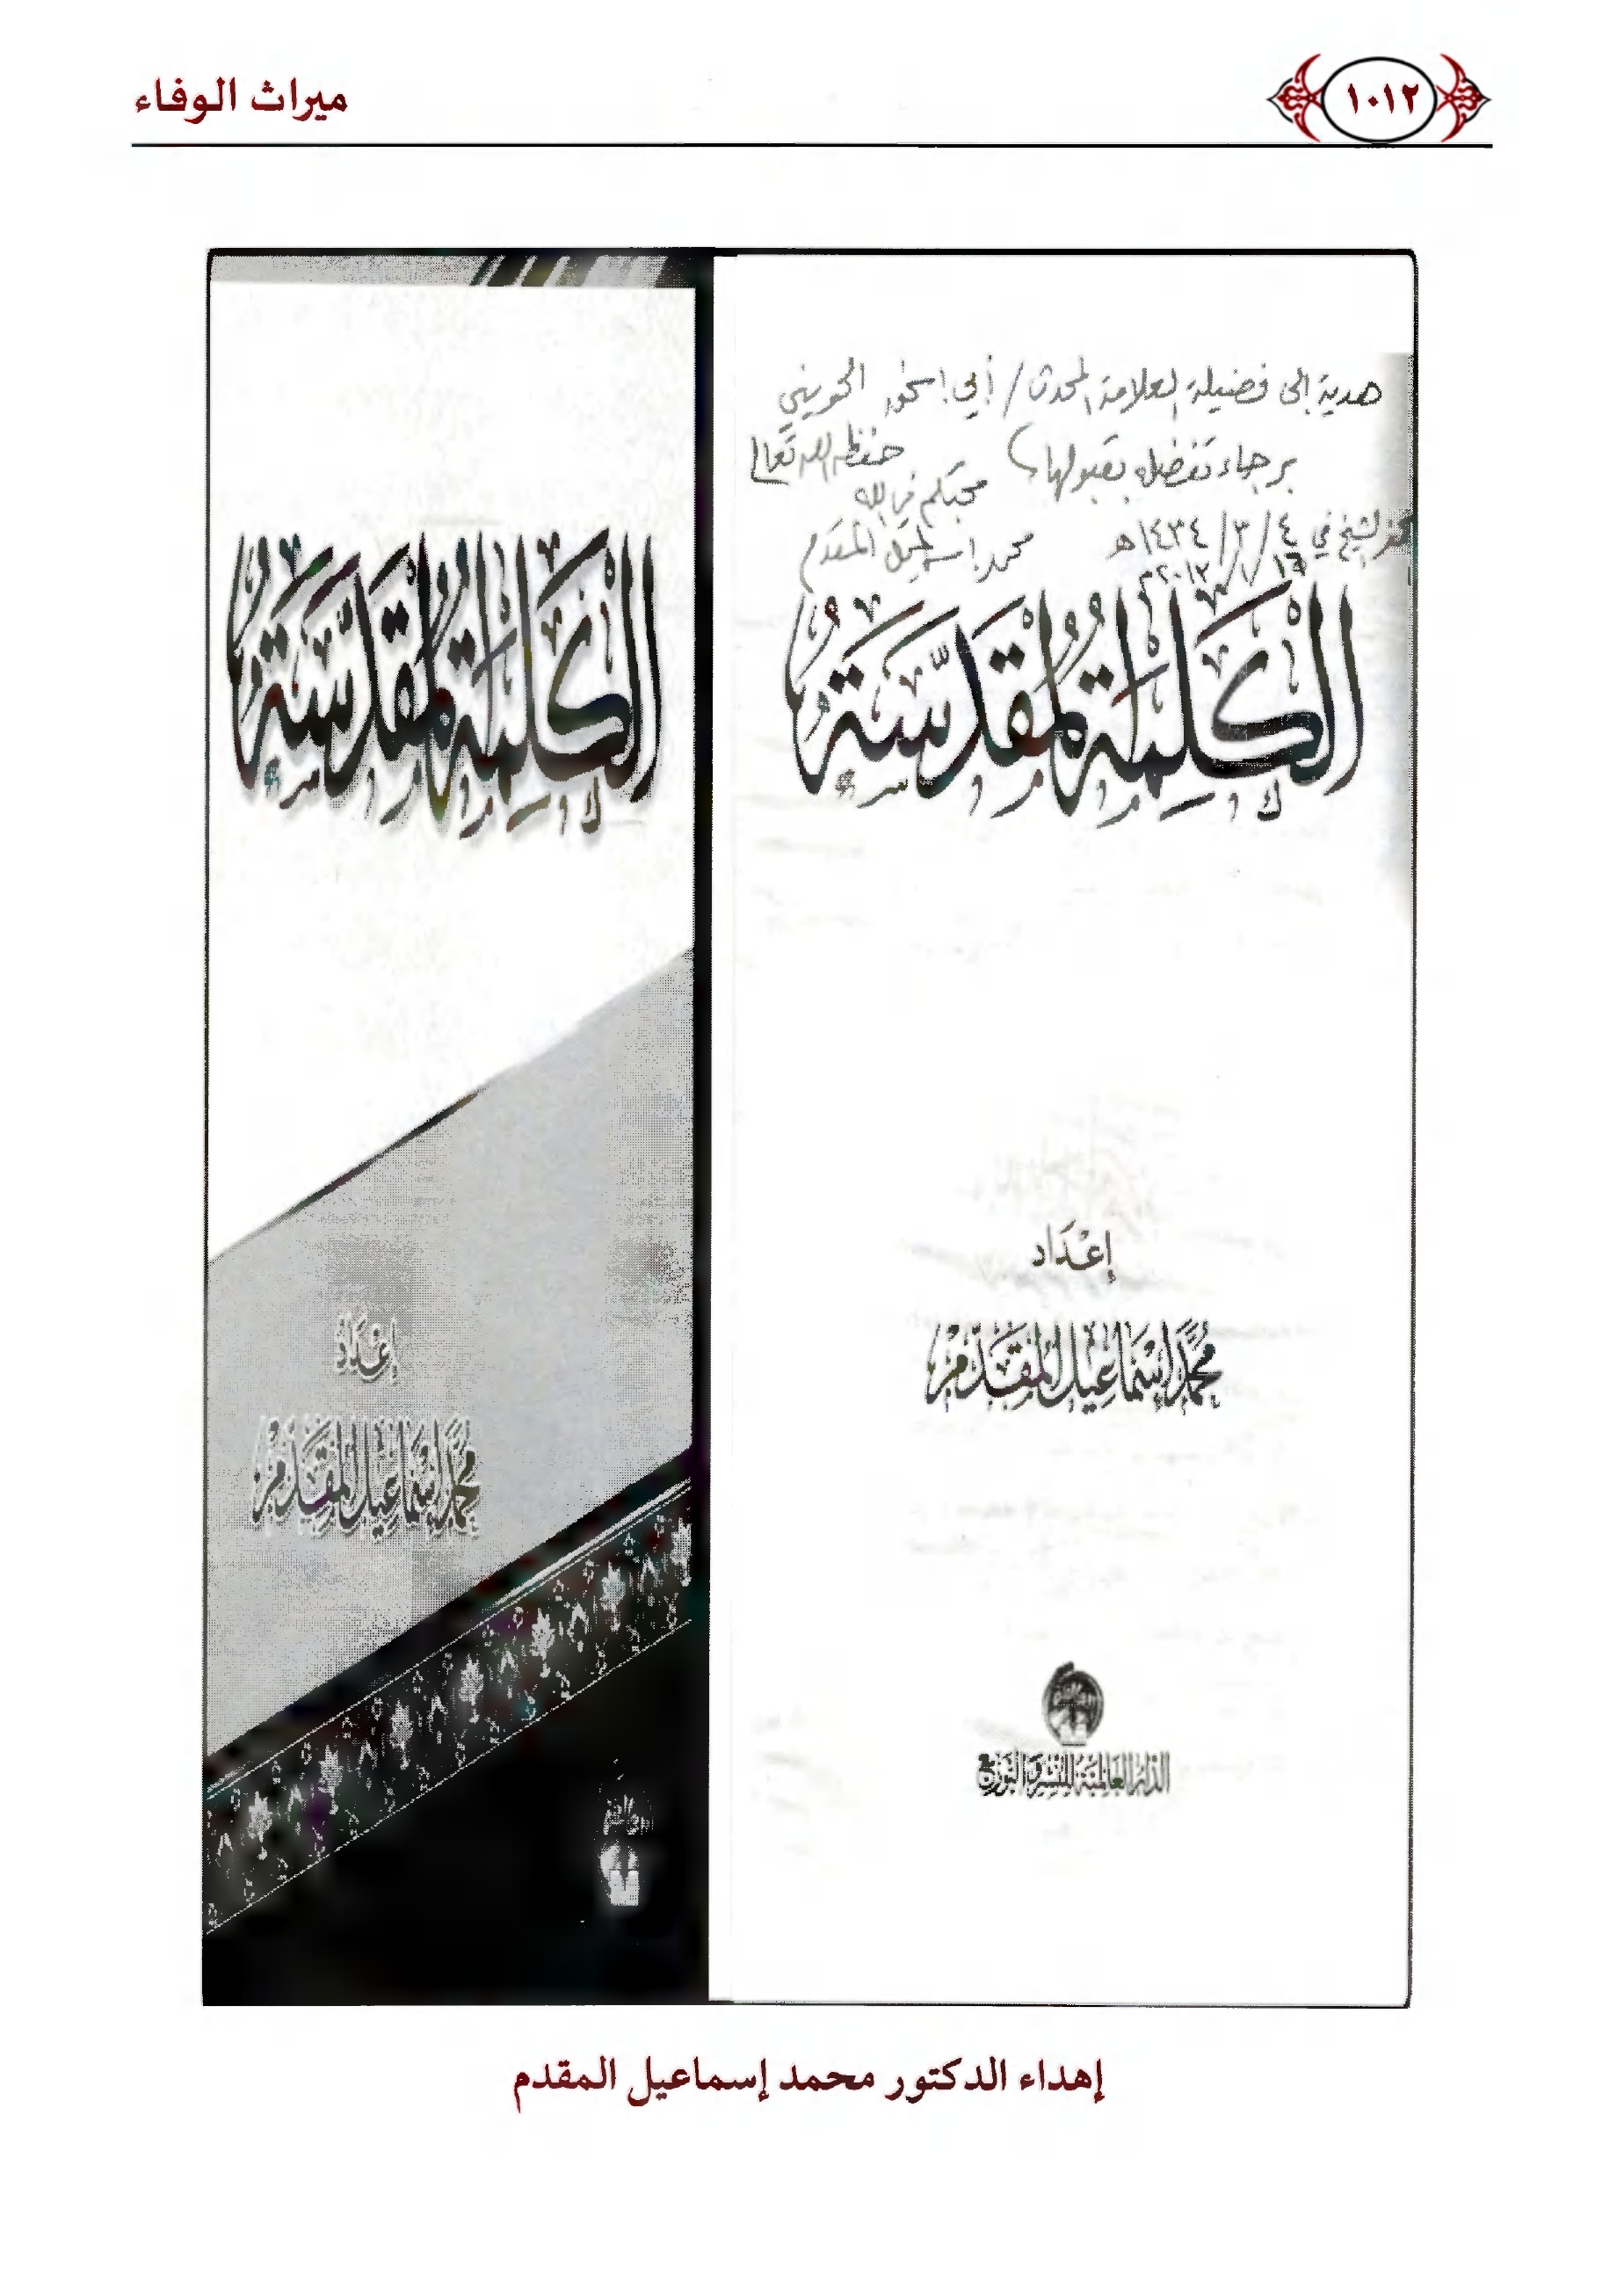 ١٠١٢
ميراث الوفاء
هدية إلى فضيلة العلامة المحدث / أبي إسحق الحويني
برجاء تفضله بقبولها حفظه الله تعالى
محبكم في الله
الشيخ في ٤ / ٣ / ١٤٣٤هـ
محمد إسماعيل المقدم
الْكَلِمَةُ الْمُقَدَّسَةُ
إعْدَاد
مُحَمَّد إِسْمَاعِيل الْمُقَدَّم
الدار العالمية للنشر والتوزيع
الْكَلِمَةُ الْمُقَدَّسَةُ
إعْدَاد
مُحَمَّد إِسْمَاعِيل الْمُقَدَّم
إهداء الدكتور محمد إسماعيل المقدم